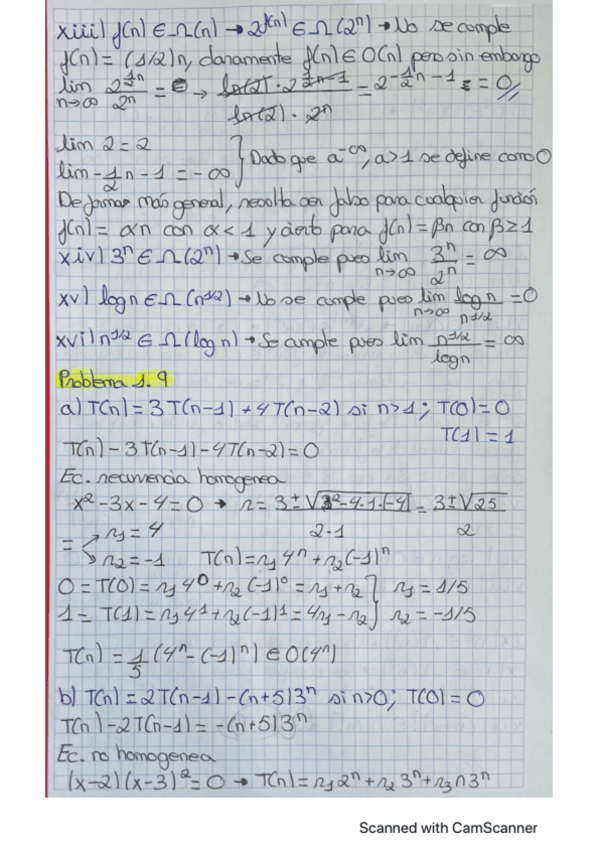 xiii) f(n) ∈ Ω(n) → 2^f(n) ∈ Ω(2^n) → No se cumple
f(n) = (1/2)n, claramente f(n) ∈ O(n) pero sin embargo
lim n→∞ 2^(½n) / 2^n = → ln(2)·2^(½n-1) / ln(2)·2^n = 2^(-½n-1) = 0//
lim 2 = 2
lim -½n - 1 = -∞ } Dado que a^-∞, a>1 se define como 0
De forma más general, resulta ser falso para cualquier función
f(n) = αn con α < 1 y cierto para f(n) = βn con β ≥ 1
xiv) 3^n ∈ Ω(2^n) → Se cumple pues lim n→∞ 3^n / 2^n = ∞
xv) log n ∈ Ω(n^1/2) → No se cumple pues lim n→∞ log n / n^1/2 = 0
xvi) n^1/2 ∈ Ω(log n) → Se cumple pues lim n^1/2 / log n = ∞
Problema 1.9
a) T(n) = 3T(n-1) + 4T(n-2) si n>1; T(0) = 0
T(1) = 1
T(n) - 3T(n-1) - 4T(n-2) = 0
Ec. recurrencia homogenea
x² - 3x - 4 = 0 → r = 3 ± √3²-4·1·(-4) / 2·1 = 3 ± √25 / 2
= r₁ = 4
r₂ = -1 T(n) = r₁4^n + r₂(-1)^n
0 = T(0) = r₁4^0 + r₂(-1)^0 = r₁ + r₂ } r₁ = 1/5
1 = T(1) = r₁4^1 + r₂(-1)^1 = 4r₁ - r₂ } r₂ = -1/5
T(n) = 1/5 (4^n - (-1)^n) ∈ O(4^n)
b) T(n) = 2T(n-1) - (n+5)3^n si n>0; T(0) = 0
T(n) - 2T(n-1) = -(n+5)3^n
Ec. no homogenea
(x-2)(x-3)² = 0 → T(n) = r₁2^n + r₂3^n + r₃n3^n
Scanned with CamScanner